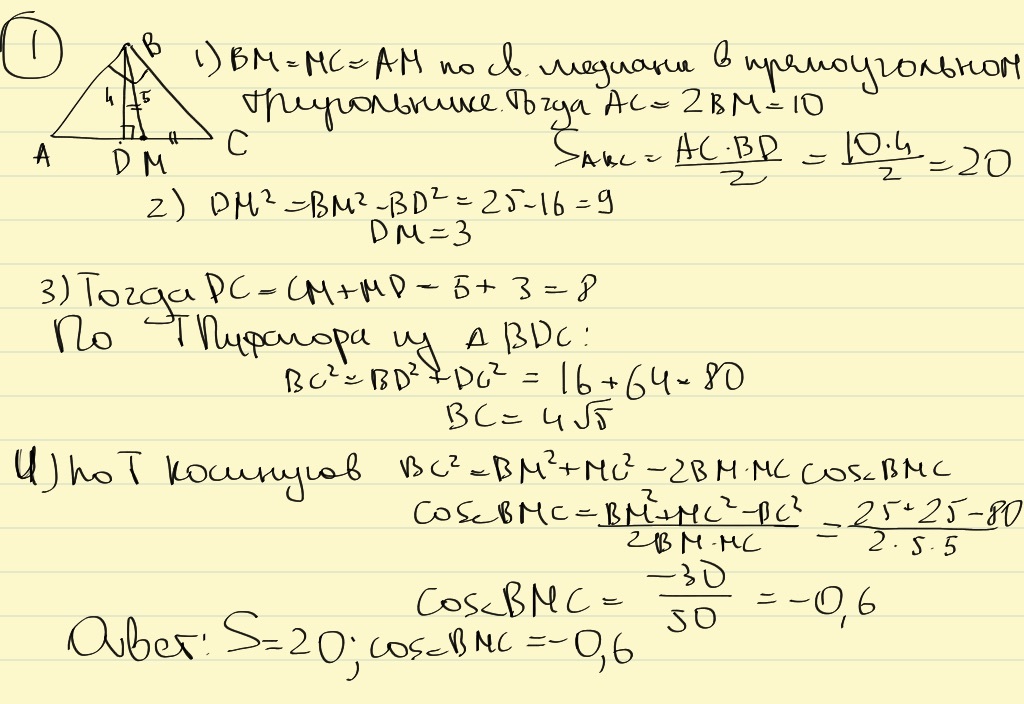 1
B
4
5
A
D M
C
1) BM = MC = AM по св. медианы в прямоугольном
треугольнике. Тогда AC = 2BM = 10
S_ABC = AC·BD/2 = 10·4/2 = 20
2) DM² = BM² - BD² = 25 - 16 = 9
DM = 3
3) Тогда DC = CM + MD = 5 + 3 = 8
По Т Пифагора из △ BDC:
BC² = BD² + DC² = 16 + 64 = 80
BC = 4√5
4) по Т косинусов BC² = BM² + MC² - 2BM·MC cos∠BMC
cos∠BMC = (BM² + MC² - BC²)/(2BM·MC) = (25 + 25 - 80)/(2·5·5)
cos∠BMC = -30/50 = -0,6
Ответ: S = 20; cos∠BMC = -0,6